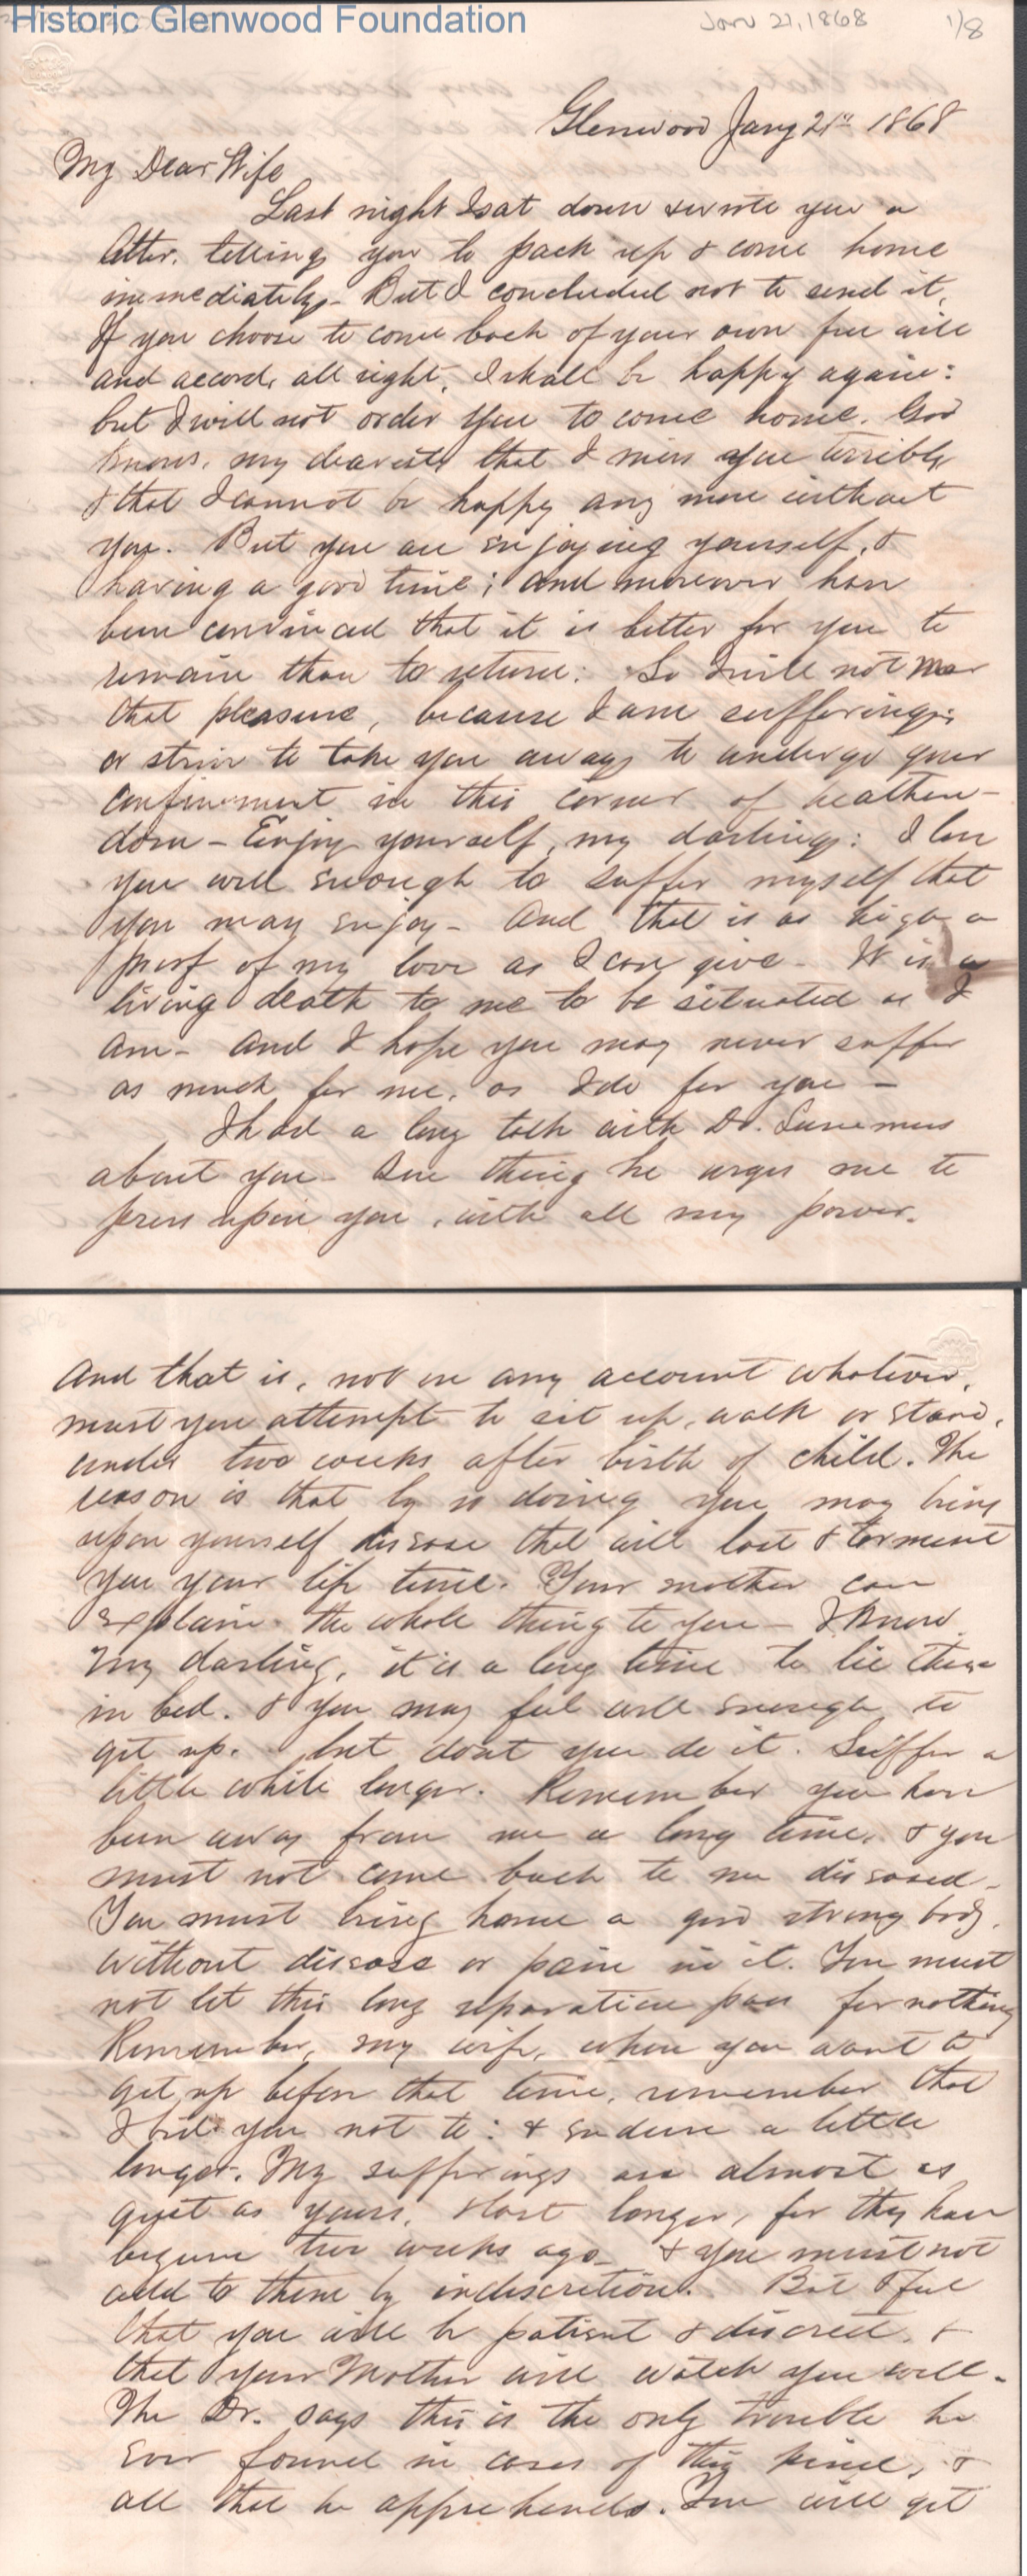 Historic Glenwood Foundation
Jan 21, 1868 1/8
Glenwood Jany 21st 1868
My Dear Wife
Last night I sat down & wrote you a
letter, telling you to pack up & come home
immediately - But I concluded not to send it,
If you choose to come back of your own free will
and accord, all right, I shall be happy again:
but I will not order you to come home. God
knows, my dearest, that I miss you terribly
& that I cannot be happy any more without
you. But you are enjoying yourself, &
having a good time; and moreover have
been convinced that it is better for you to
remain than to return: So I will not mar
that pleasure, because I am suffering;
or strive to take you away to undergo your
confinement in this corner of heathen-
dom - Enjoy yourself, my darling: I love
you well enough to suffer myself that
you may enjoy - And that is as high a
proof of my love as I can give - It is a
living death to me to be situated as I
am - And I hope you may never suffer
as much for me, as I do for you -
I had a long talk with Dr.
about you - One thing he urges me to
press upon you, with all my power.
And that is, not on any account whatever,
must you attempt to sit up, walk or stand,
under two weeks after birth of child. The
reason is that by so doing you may bring
upon yourself disease that will last & torment
you your life time. Your mother can
explain the whole thing to you - I know
my darling, it is a long time to lie there
in bed. & you may feel well enough to
get up. but dont you do it. Suffer a
little while longer. Remember you have
been away from me a long time, & you
must not come back to me diseased -
You must bring home a good strong body,
without disease or pain in it. You must
not let this long separation pass for nothing
Remember, my wife, when you want to
get up before that time, remember that
I bid you not to: & endure a little
longer. My sufferings are almost as
great as yours, & last longer, for they have
begun two weeks ago - & you must not
add to them by indiscretion. But I feel
that you will be patient & discreet, &
that your Mother will watch you well -
The Dr. says this is the only trouble he
ever found in cases of this kind, &
all that he apprehends. You will get